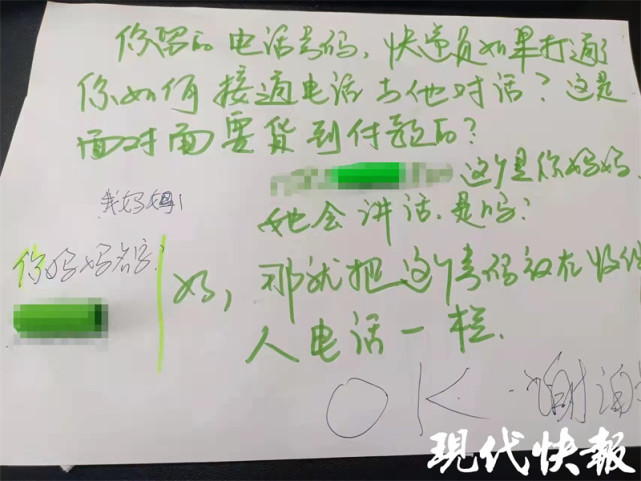 你留的电话号码，快递员如果打通了
你如何接通电话与他对话？这是
面对面要货到付款的？
这个是你妈妈，
她会讲话.是吗？
我妈妈
你妈妈名字？
好，那就把这个号码放在收件
人电话一栏.
OK.谢谢
現代快報